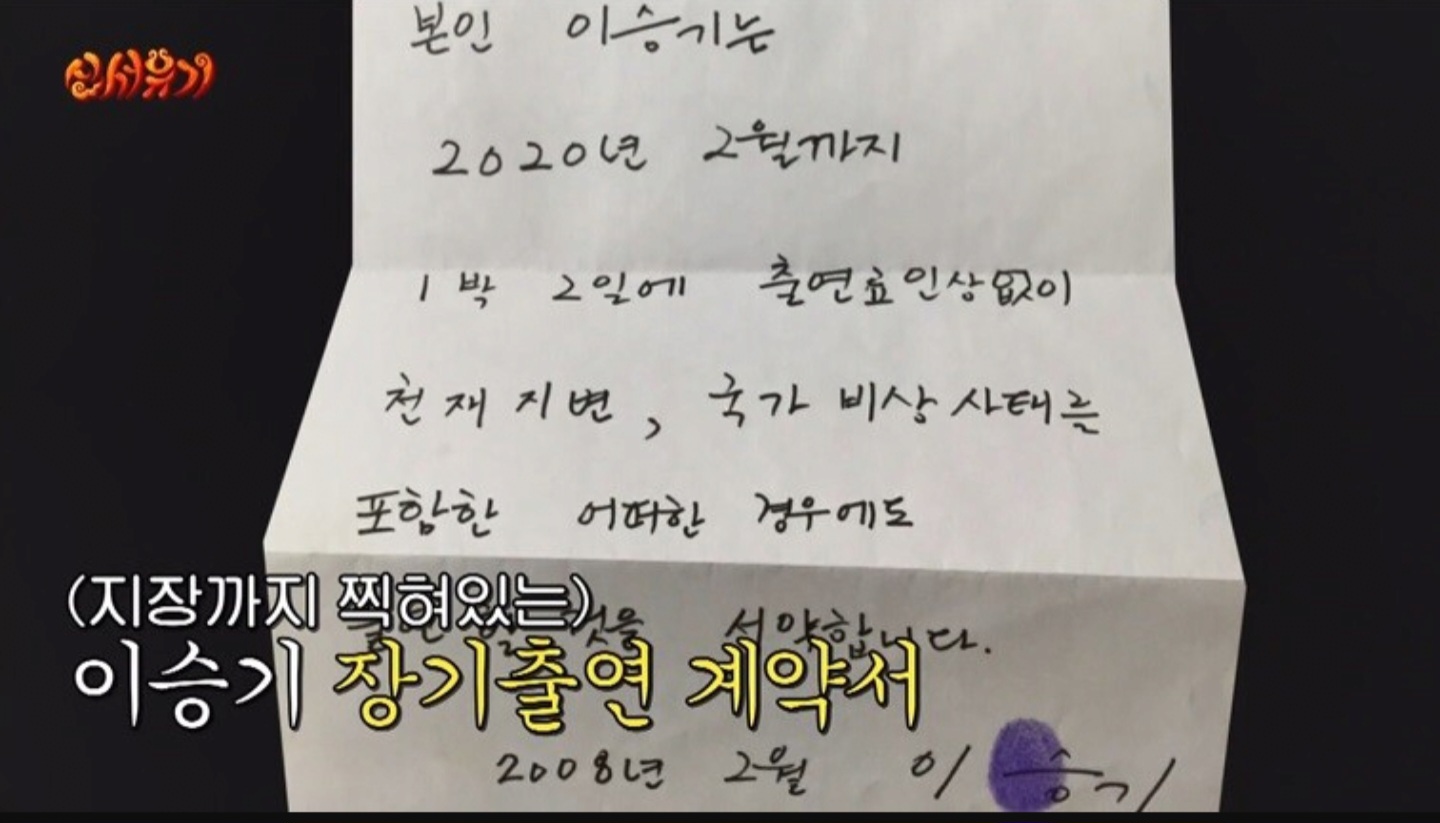 신서유기
본인 이승기는
2020년 2월까지
1박 2일에 출연료인상없이
천재지변, 국가 비상사태를
포함한 어떠한 경우에도
서약합니다.
(지장까지 찍혀있는)
이승기 장기출연 계약서
2008년 2월 이승기